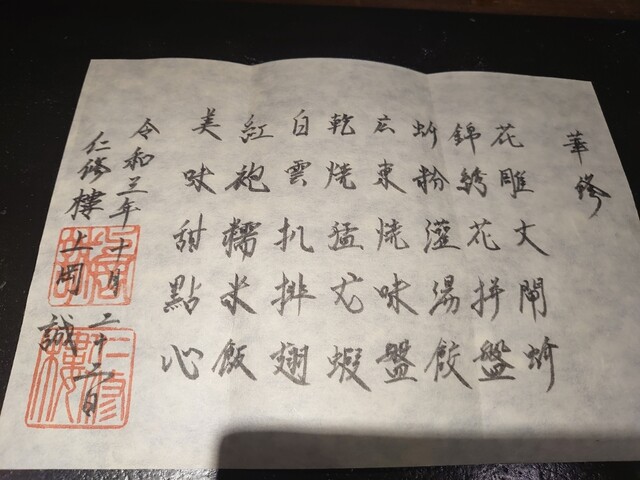 華修
花雕大閘蚧
錦綉花拼盤
蚧粉灌湯餃
広東焼味盤
乾焼猛尤蝦
白雲扒排翅
紅袍糯米飯
美味甜點心
令和三年十月二十二日
仁修樓 上岡誠
仁修樓